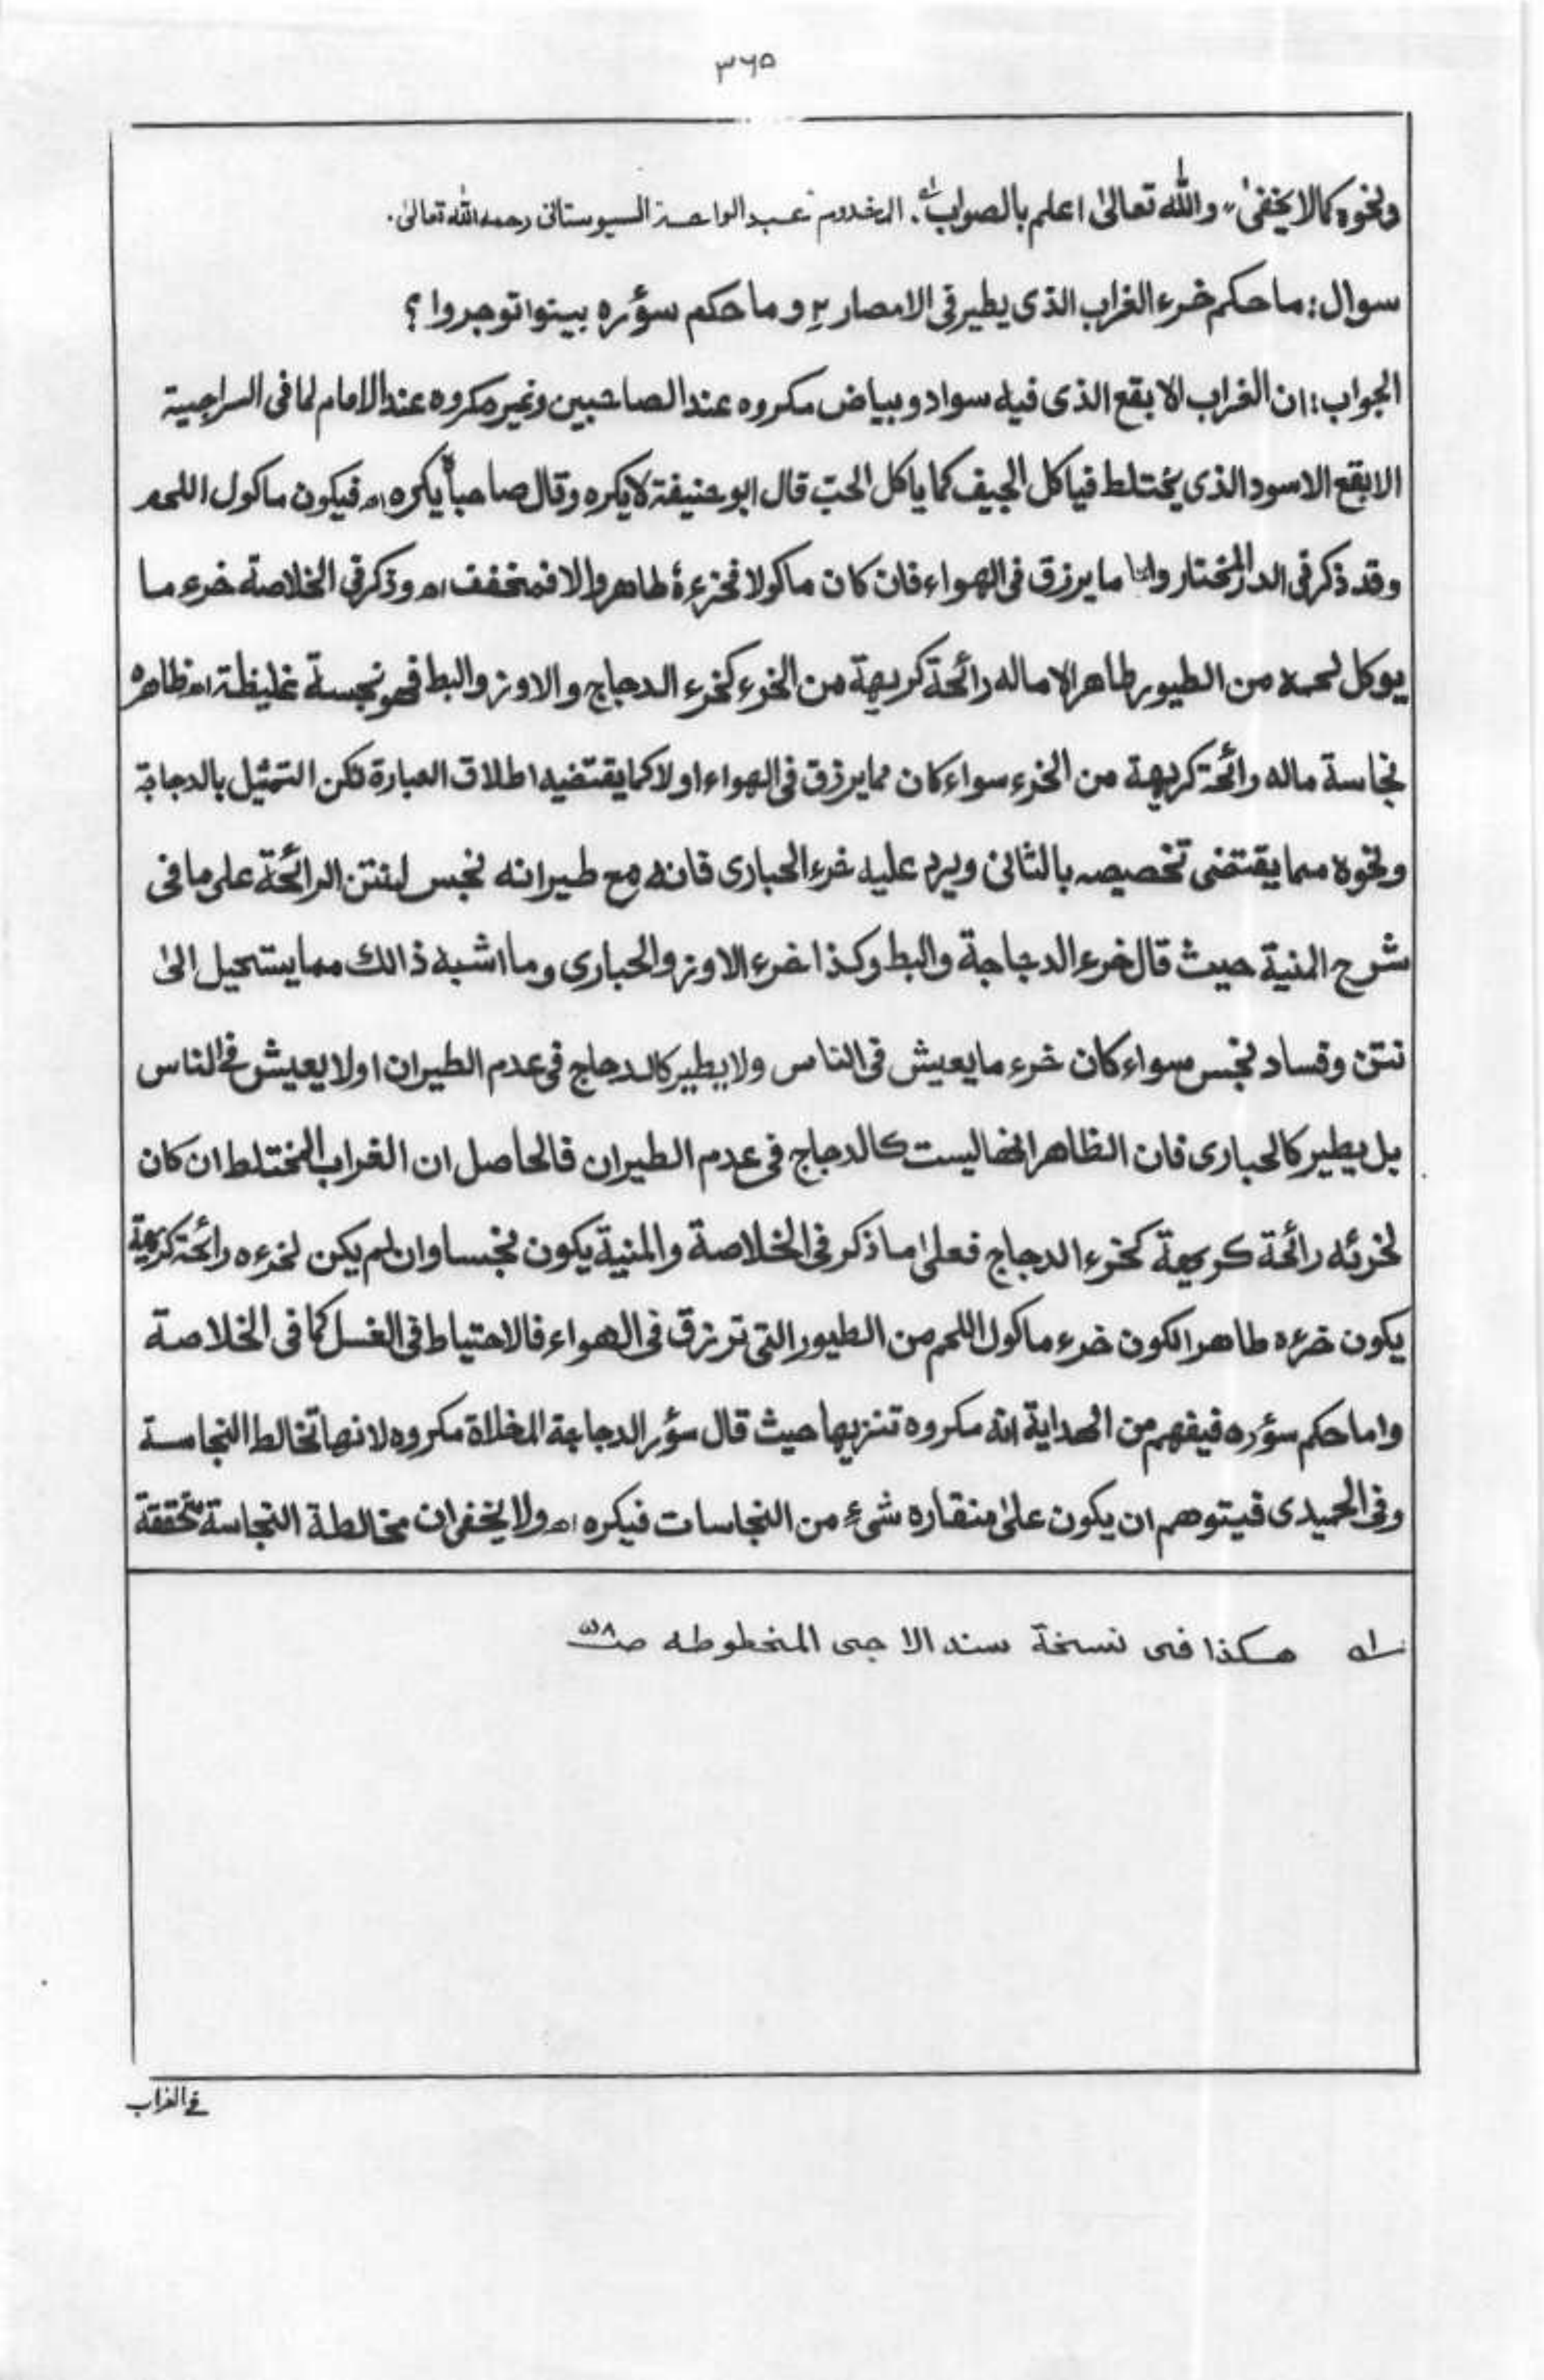 ۳۶۵
ونحوه كمالا يخفىٰ" والله تعالىٰ اعلم بالصواب لـه. المخدوم عبد الواحد السيوستانى رحمه الله تعالىٰ.
سوال: ما حكم خرء الغراب الذى يطير فى الامصار و ما حكم سؤره بينوا توجروا ؟
الجواب: ان الغراب الابقع الذى فيه سواد و بياض مكروه عند الصاحبين وغير مكروه عند الامام لما فى السراجية
الابقع الاسود الذى يختلط فياكل الجيف كما ياكل الحبّ قال ابو حنيفة لا يكره وقال صاحباه يكره اھ فيكون ماكول اللحم
وقد ذكر فى الدر المختار واما ما يرزق فى الهواء فان كان ماكولا فخرءهٗ طاهر والا فمخفف اھ وذكر فى الخلاصة خرء ما
يوكل لحمه من الطيور طاهر الا ماله رائحة كريهة من الخرء كخرء الدجاج والاوز والبط فهو نجسة غليظة اھ فظاهره
نجاسة ماله رائحة كريهة من الخرء سواء كان مما يرزق فى الهواء اولا كما يقتضيه اطلاق العبارة لكن التمثيل بالدجاجة
ونحوه مما يقتضى تخصيصه بالثانى ويرد عليه خرء الحبارى فانه مع طيرانه نجس لنتن الرائحة على ما فى
شرح المنية حيث قال خرء الدجاجة والبط وكذا خرء الاوز والحبارى وما اشبه ذالك مما يستحيل الىٰ
نتن وفساد نجس سواء كان خرء ما يعيش فى الناس ولا يطير كالدجاج فى عدم الطيران اولا يعيش فى الناس
بل يطير كالحبارى فان الظاهر انها ليست كالدجاج فى عدم الطيران فالحاصل ان الغراب المختلط ان كان
لخرئه رائحة كريهة كخرء الدجاج فعلىٰ ما ذكر فى الخلاصة والمنية يكون نجسا وان لم يكن لخرءه رائحة كريهة
يكون خرءه طاهرا لكون خرء ماكول اللحم من الطيور التى ترزق فى الهواء فالاحتياط فى الغسل كما فى الخلاصة
واما حكم سؤره فيفهم من الهداية انه مكروه تنزيها حيث قال سؤر الدجاجة المخلاة مكروه لانها تخالط النجاسة
وفى الحميدى فيتوهم ان يكون علىٰ منقاره شىءٍ من النجاسات فيكره اھ ولا يخفى ان مخالطة النجاسة متحققة
لـه هكذا فى نسخة سند الا جى المخطوطه صـ
فى الغراب